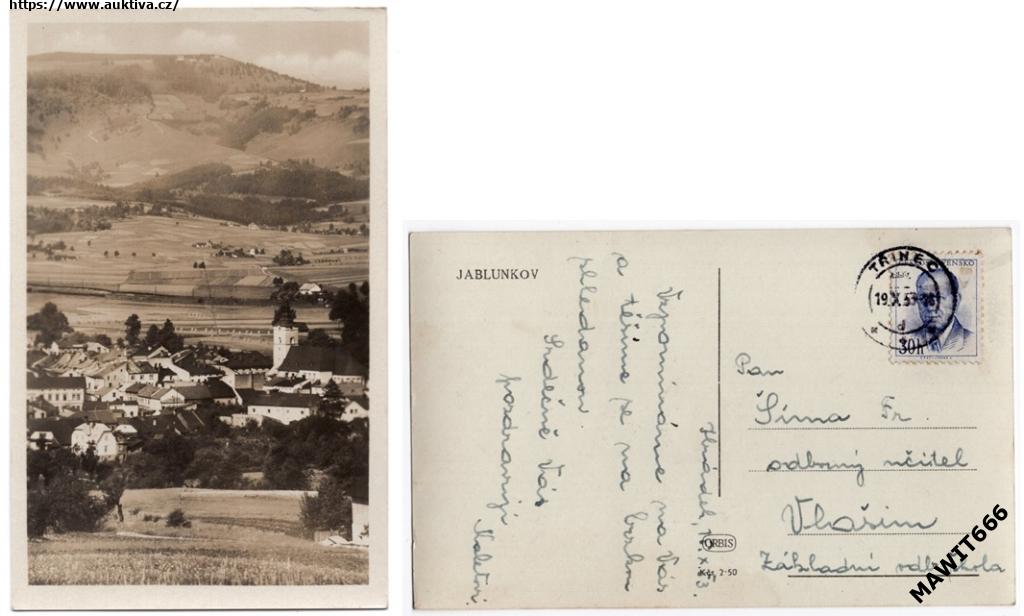 https://www.auktiva.cz/
JABLUNKOV
Hrádek, 17.X.53.
Vzpomínáme na Vás
a těšíme se na brzkou
shledanou.
Srdečně Vás
pozdravují
TŘINEC
19.X.53
d
30h
Pan
Šíma Fr.
odborný učitel
Vlašim
Základní odb. škola
ORBIS
2-50
MAWIT666